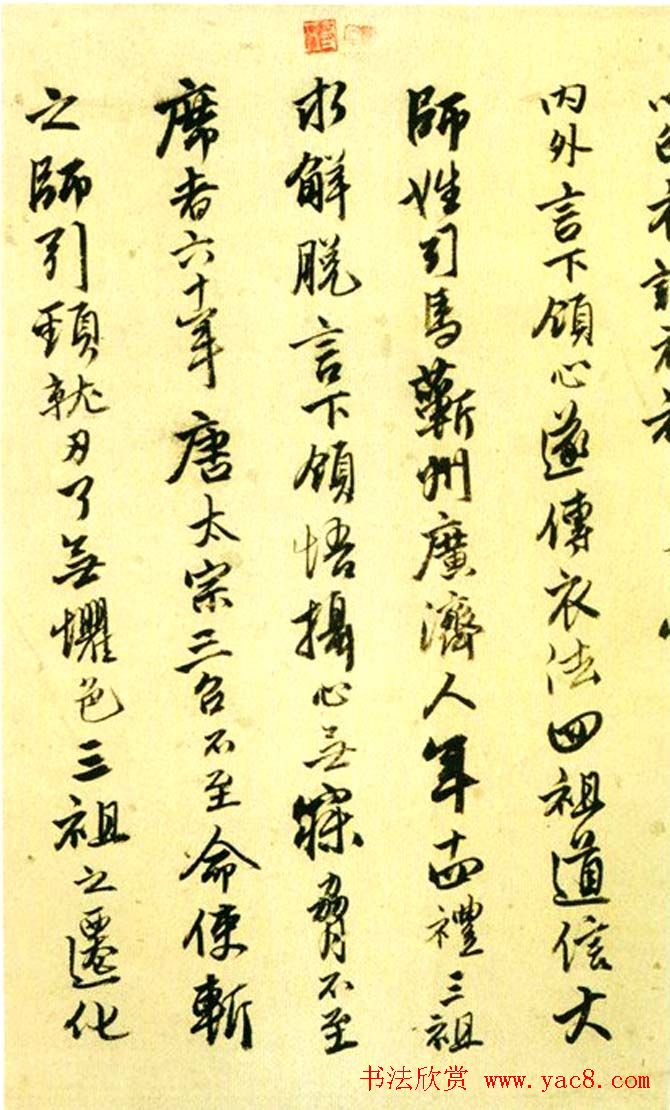 內外言下領心遂傳衣法四祖道信大
師姓司馬蘄州廣濟人年十四禮三祖
求解脫言下領悟攝心無寐脅不至
席者六十年唐太宗三召不至命使斬
之師引頸就刃了無懼色三祖之遷化
书法欣赏 www.yac8.com